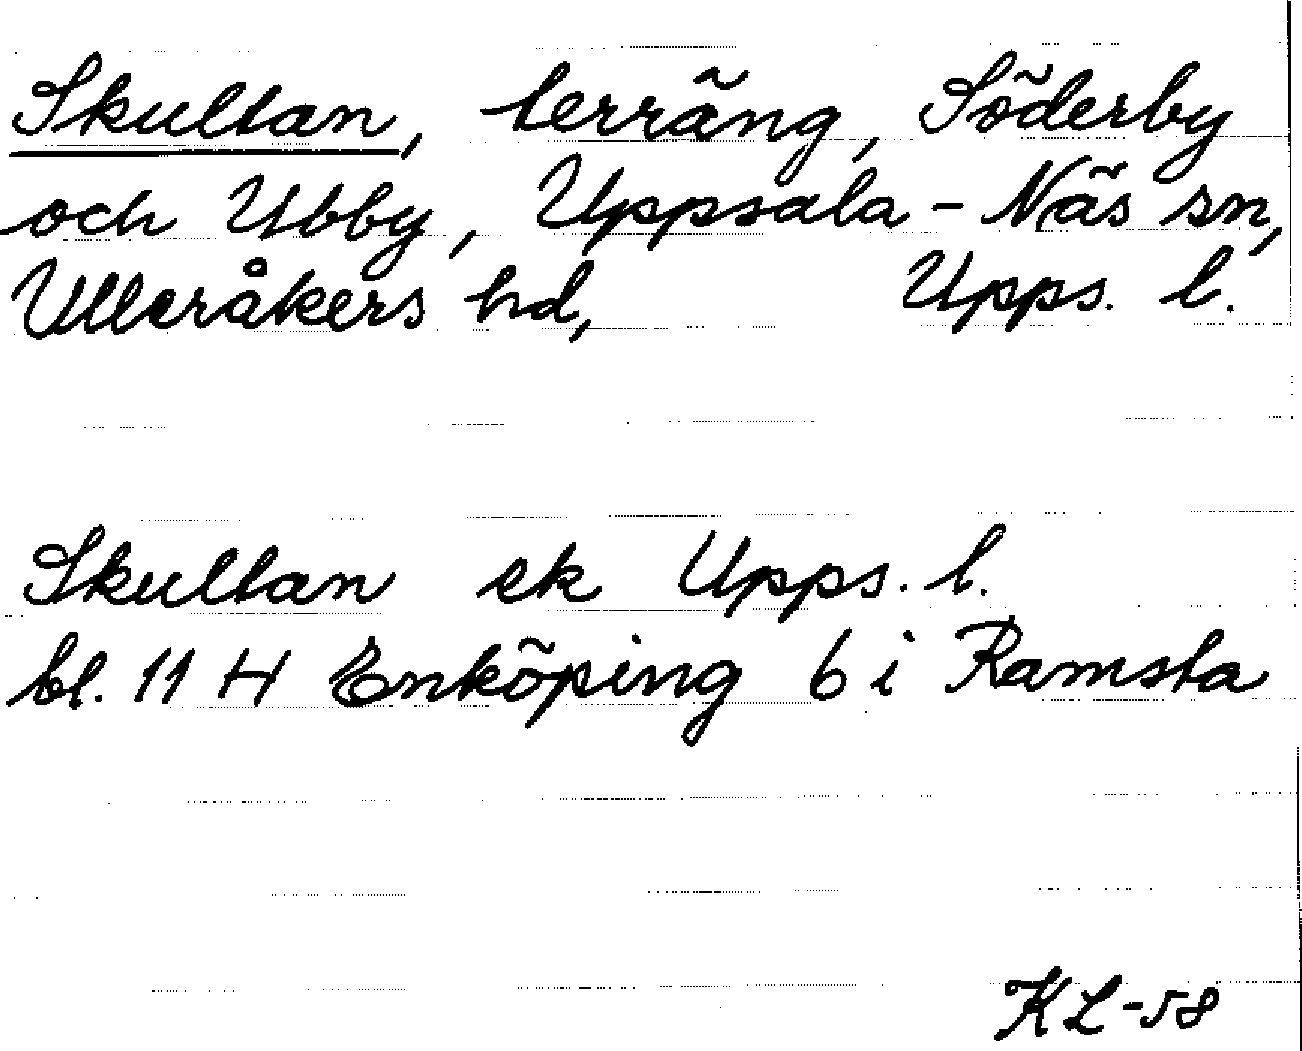 Skultan, terräng, Söderby
och Ubby, Uppsala-Näs sn,
Ulleråkers hd, Upps. l.
Skultan ek Upps. l.
bl. 11 H Enköping 6 i Ramsta
KL-58